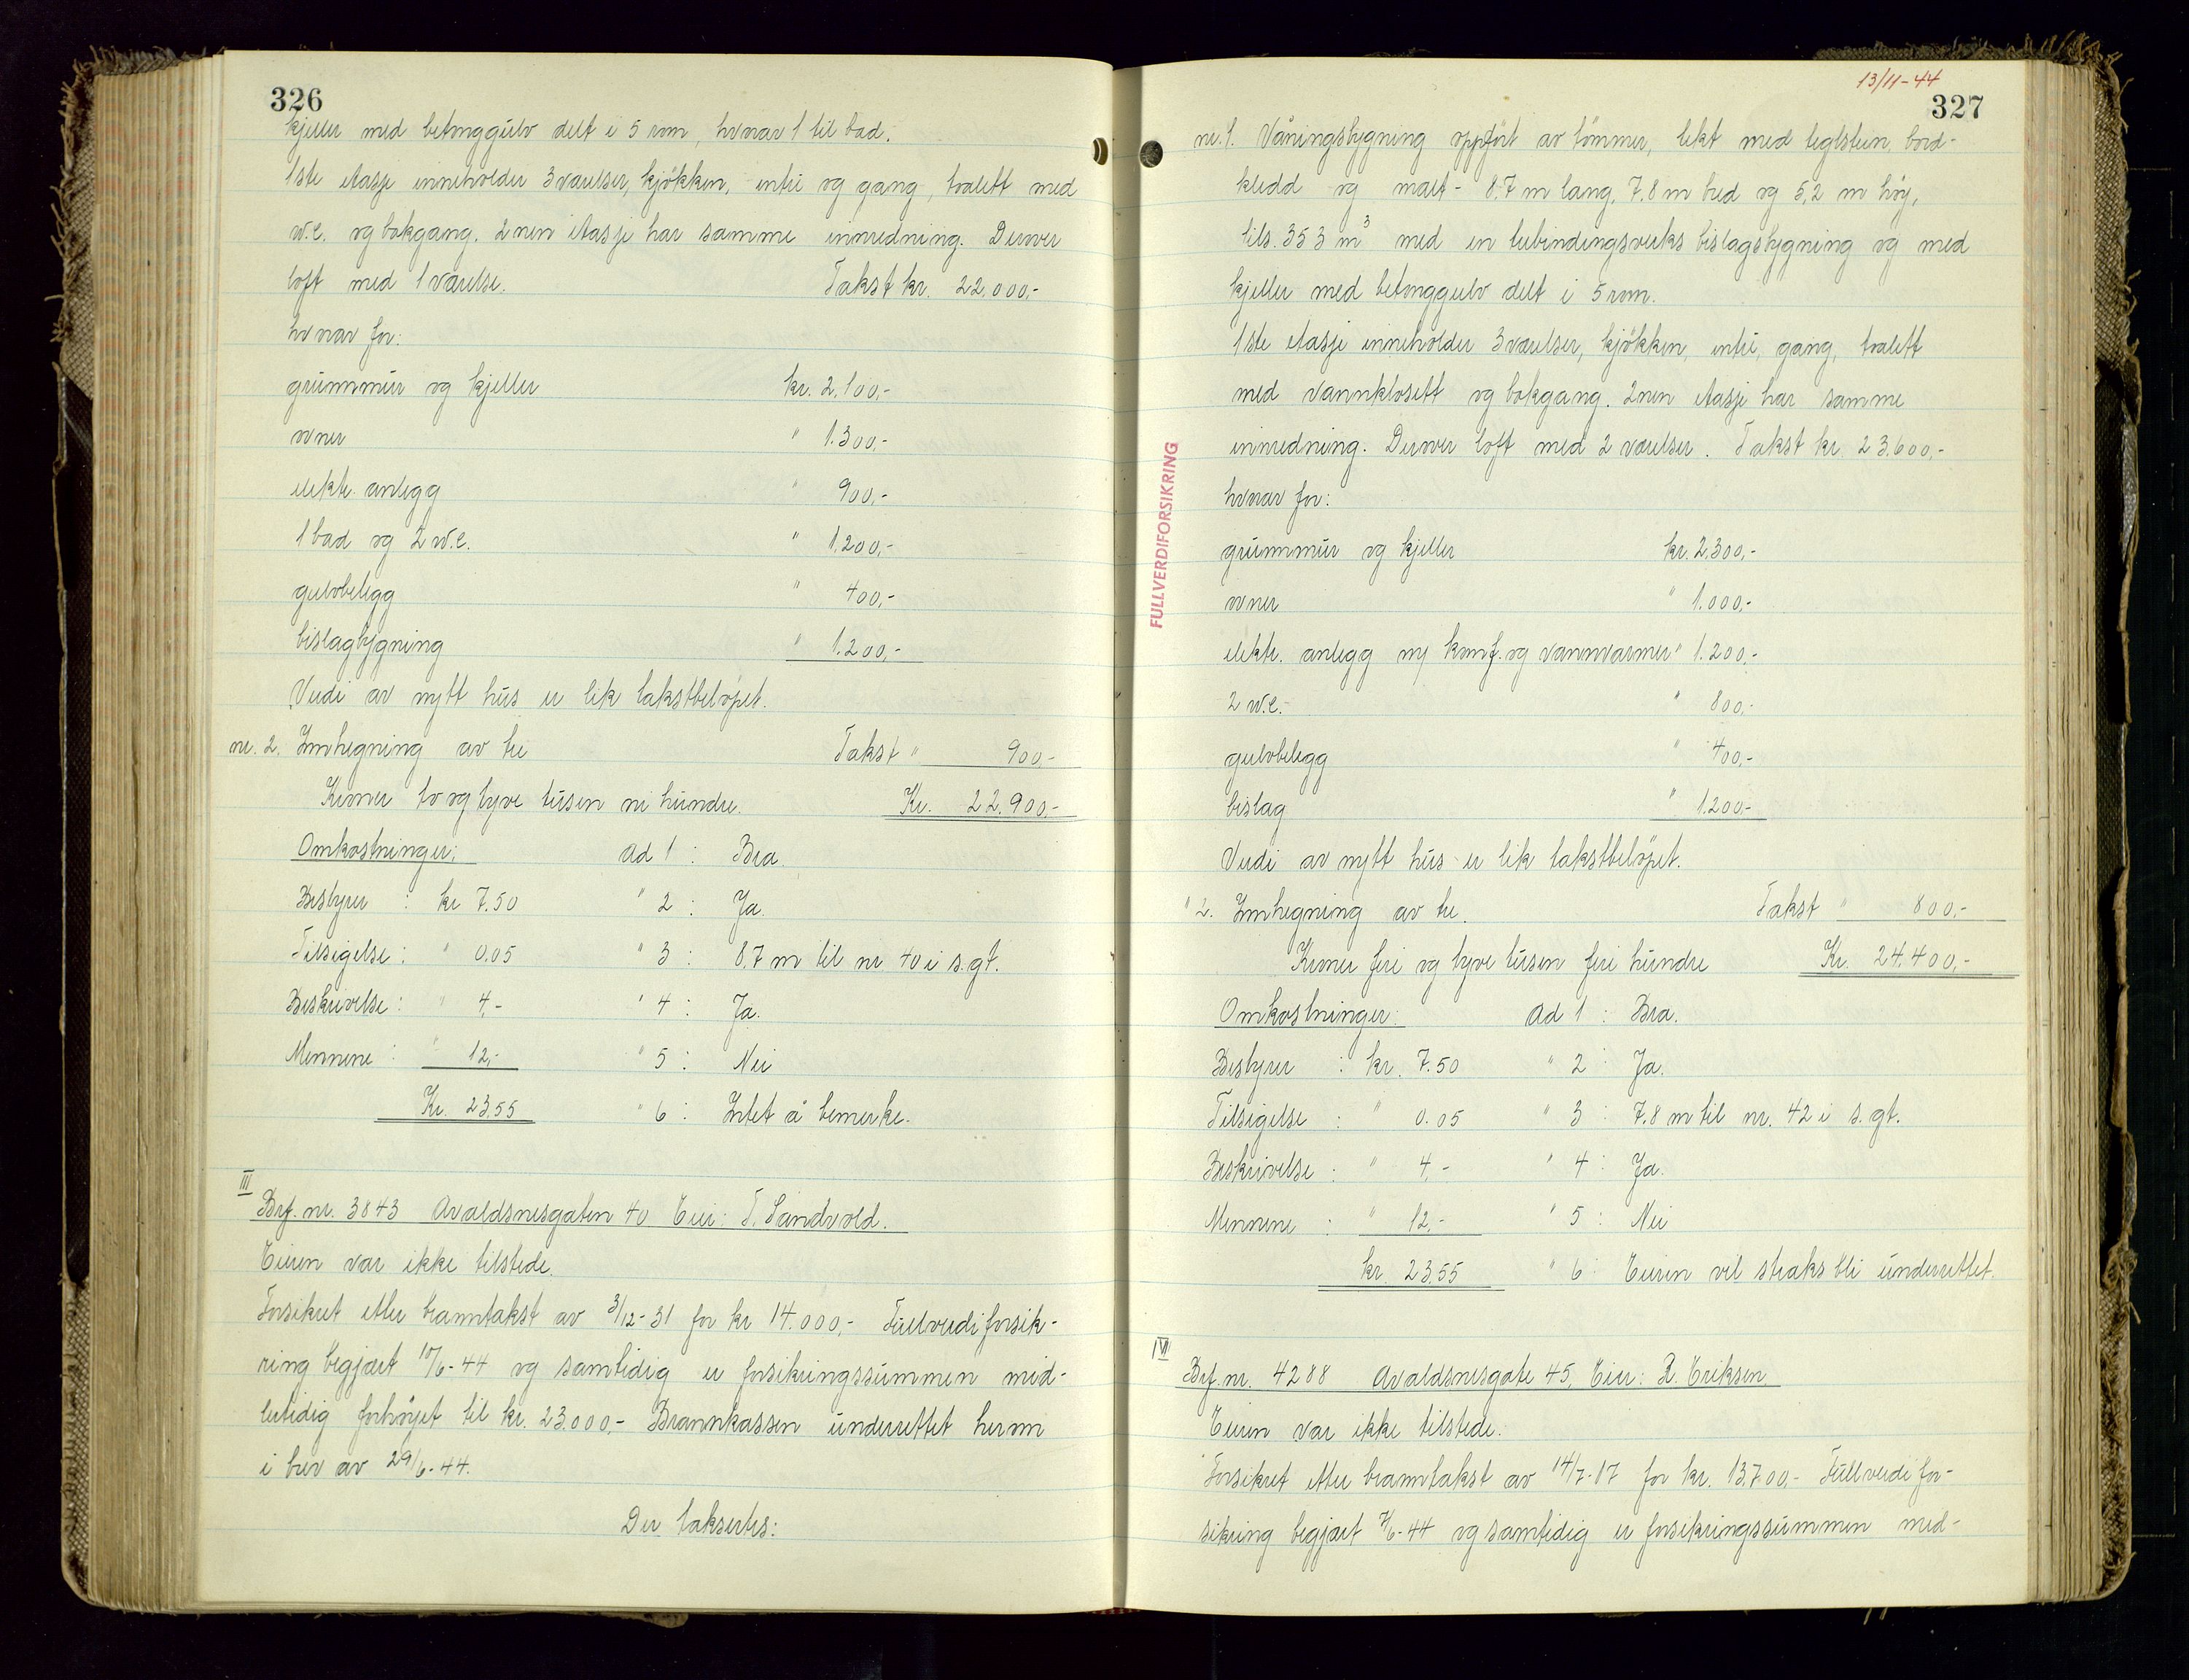 326
kjeller med betonggulv delt i 5 rom, hvorav 1 til bad.
1ste etasje inneholder 3 værelser, kjökken, entré og gang, toalett med
w.c. og bakgang. 2nen etasje har samme innredning. Derover
loft med 1 værelse. Takst kr. 22.000,-
hvorav for:
grunnmur og kjeller kr. 2.100,-
ovner " 1.300,-
elektr. anlegg " 900,-
1 bad og 2 w.c. " 1.200,-
gulvbelegg " 400,-
bislagbygning " 1.200,-
Verdi av nytt hus er lik takstbelöpet.
nr. 2. Innhegning av tre Takst " 900,-
Kroner to og tyve tusen ni hundre. Kr. 22.900,-
Omkostninger: ad 1 : Bra.
Bestyrer : kr 7.50 " 2 : Ja.
Tilsigelse : " 0.05 " 3 : 8.7 m til nr 40 i s.gt.
Beskrivelse : " 4,- " 4 : Ja.
Mennene : " 12,- " 5 : Nei
Kr. 23.55 " 6 : Intet å bemerke.
III
Brf. nr. 3843 Avaldsnesgaten 40 Eier: T. Sandvold.
Eieren var ikke tilstede.
Forsikret etter branntakst av 3/12-31 for kr 14.000,- Fullverdiforsik-
ring begjært 10/6-44 og samtidig er forsikringssummen mid-
lertidig forhöyet til kr. 23.000,- Brannkassen underrettet herom
i brev av 29/6-44.
Der taksertes:
13/11-44
327
FULLVERDIFORSIKRING
nr. 1. Våningsbygning oppfört av tömmer, tekt med teglsten, bord-
kledd og malt - 8,7 m lang, 7.8 m bred og 5,2 m höy,
tils. 353 m3 med en utbindingsverks bislagsbygning og med
kjeller med betonggulv delt i 5 rom.
1ste etasje inneholder 3 værelser, kjökken, entré, gang, toalett
med vannklosett og bakgang. 2nen etasje har samme
innredning. Derover loft med 2 værelser. Takst kr. 23.600,-
hvorav for:
grunnmur og kjeller kr. 2.300,-
ovner " 1.000,-
elektr. anlegg m/ komf. og vannvarmer " 1.200,-
2 w.c. " 800,-
gulvbelegg " 400,-
bislag " 1.200,-
Verdi av nytt hus er lik takstbelöpet.
" 2. Innhegning av tre. Takst " 800,-
Kroner fire og tyve tusen fire hundre Kr. 24.400,-
Omkostninger: ad 1 : Bra.
Bestyrer : kr. 7.50 " 2 : Ja.
Tilsigelse : " 0.05 " 3 : 7.8 m til nr. 42 i s.gt.
Beskrivelse : " 4,- " 4 : Ja.
Mennene : " 12,- " 5 : Nei
kr. 23.55 " 6 : Eieren vil straks bli underrettet.
IV
Brf. nr. 4288 Avaldsnesgate 45, Eier: R. Eriksen.
Eieren var ikke tilstede.
Forsikret etter branntakst av 14/7-17 for kr. 13.700,- Fullverdifor-
sikring begjært 7/6-44 og samtidig er forsikringssummen med-